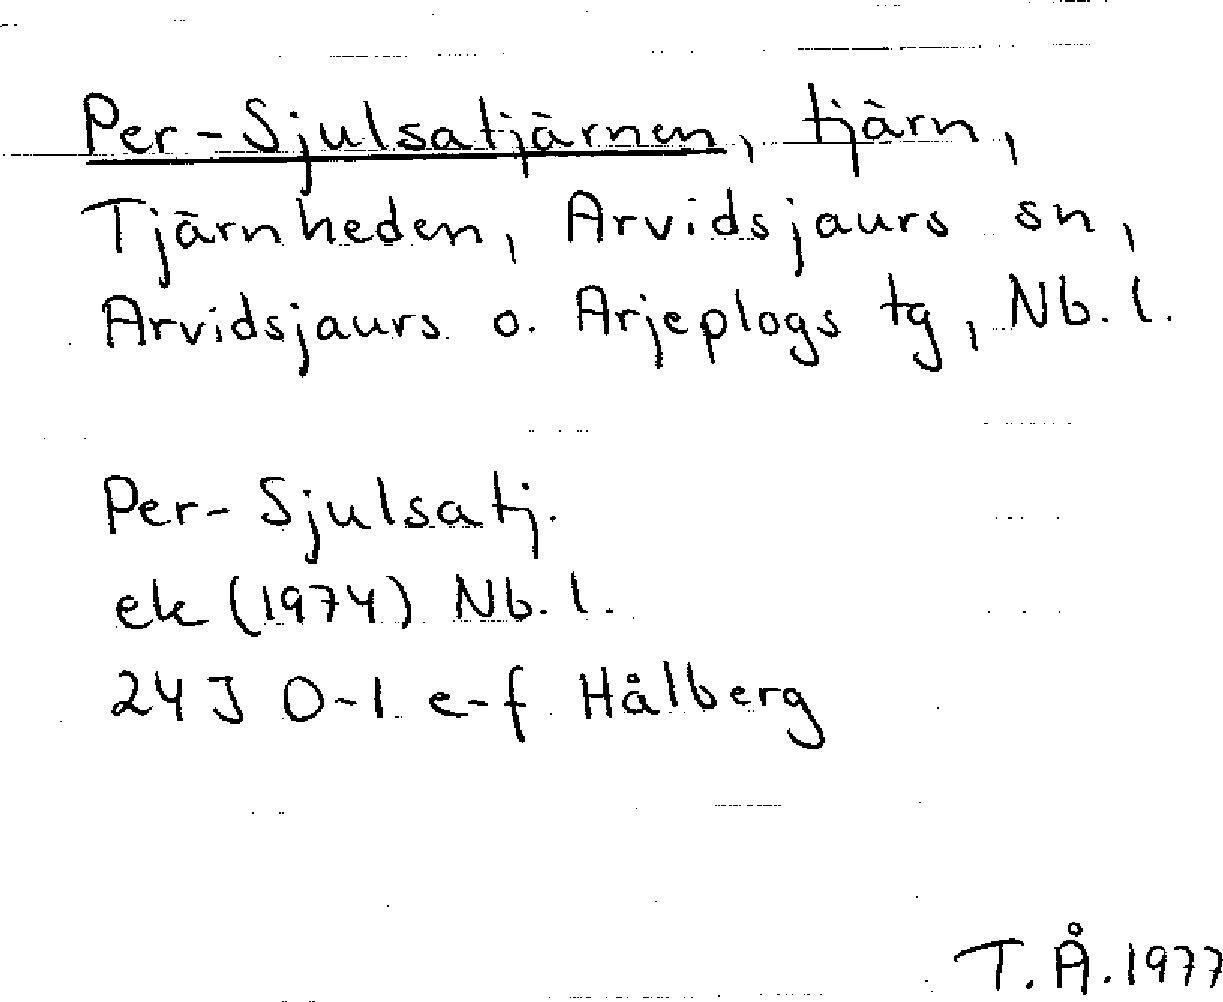 Per-Sjulsatjärnen, tjärn,
Tjärnheden, Arvidsjaurs sn,
Arvidsjaurs o. Arjeplogs tg, Nb. l.
Per-Sjulsatj.
ek (1974) Nb. l.
24 J 0-1 e-f Hålberg
T. Å. 1977